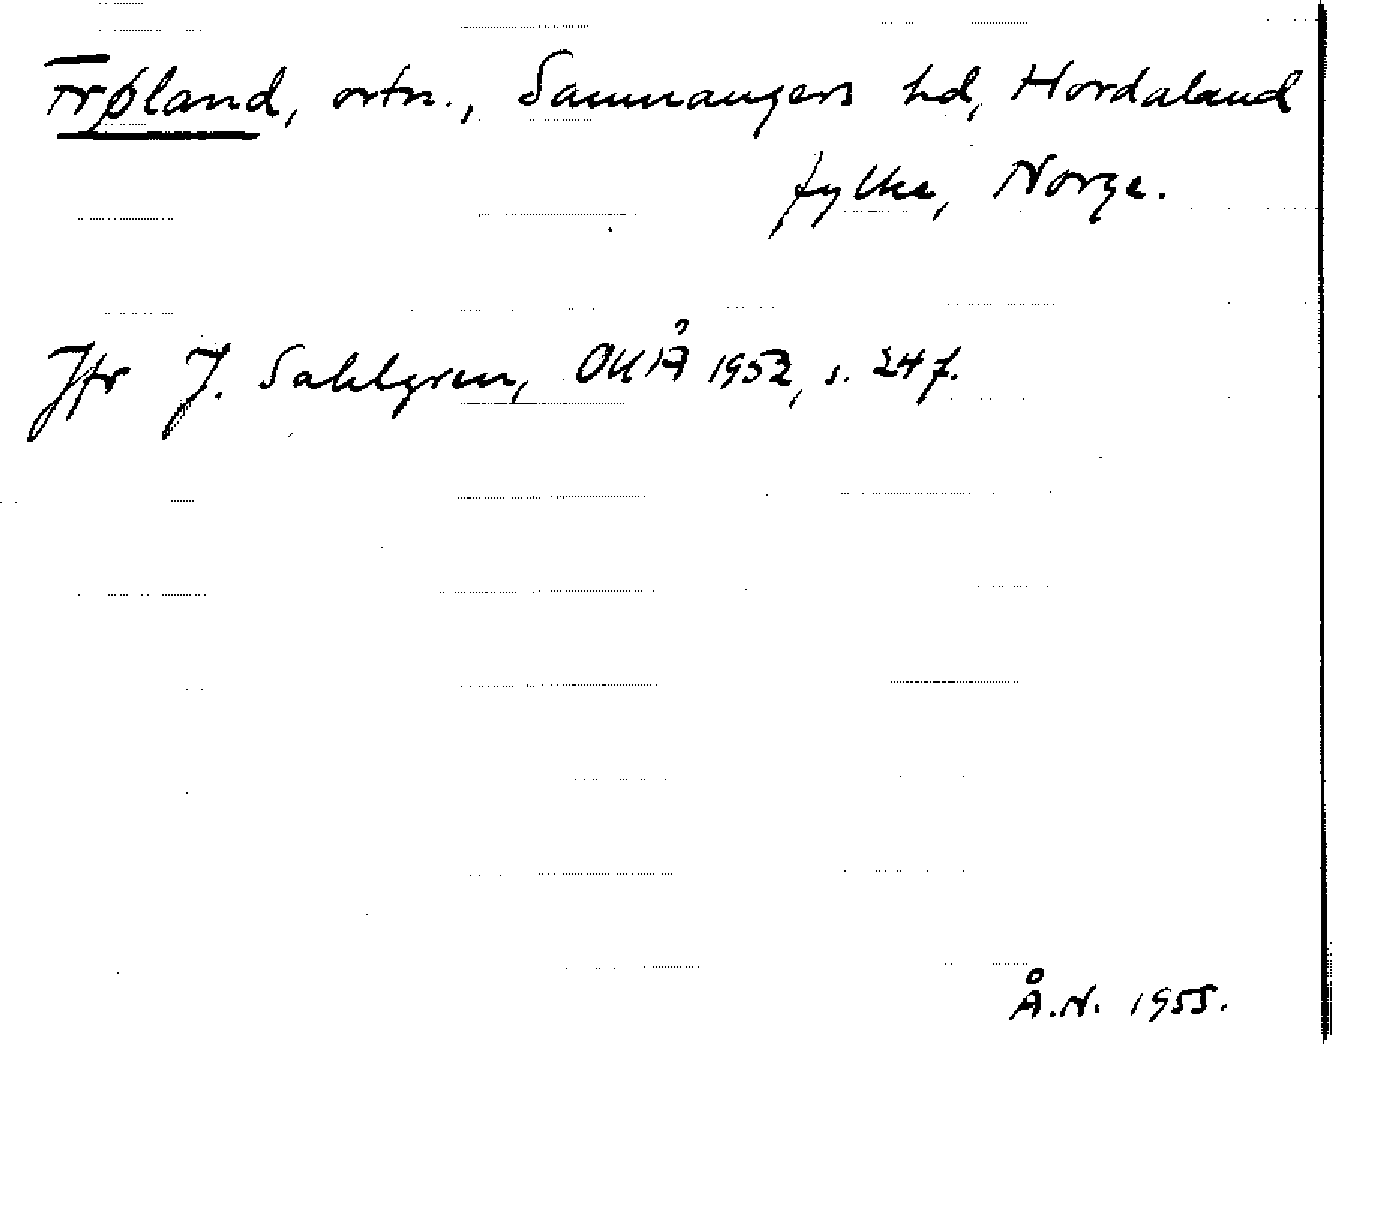 Frøland, ortn., Samnangers hd, Hordaland
fylke, Norge.
Jfr J. Sahlgren, OUÅ 1952, s. 24 f.
Å.N. 1955.